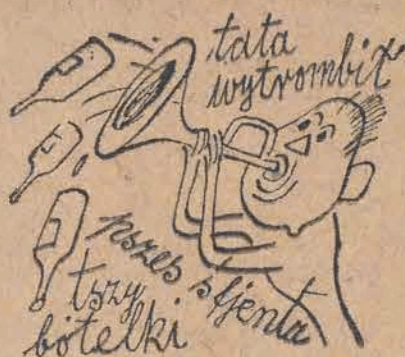 tata
wytrombił
pszes sfjenta
tszy
botelki